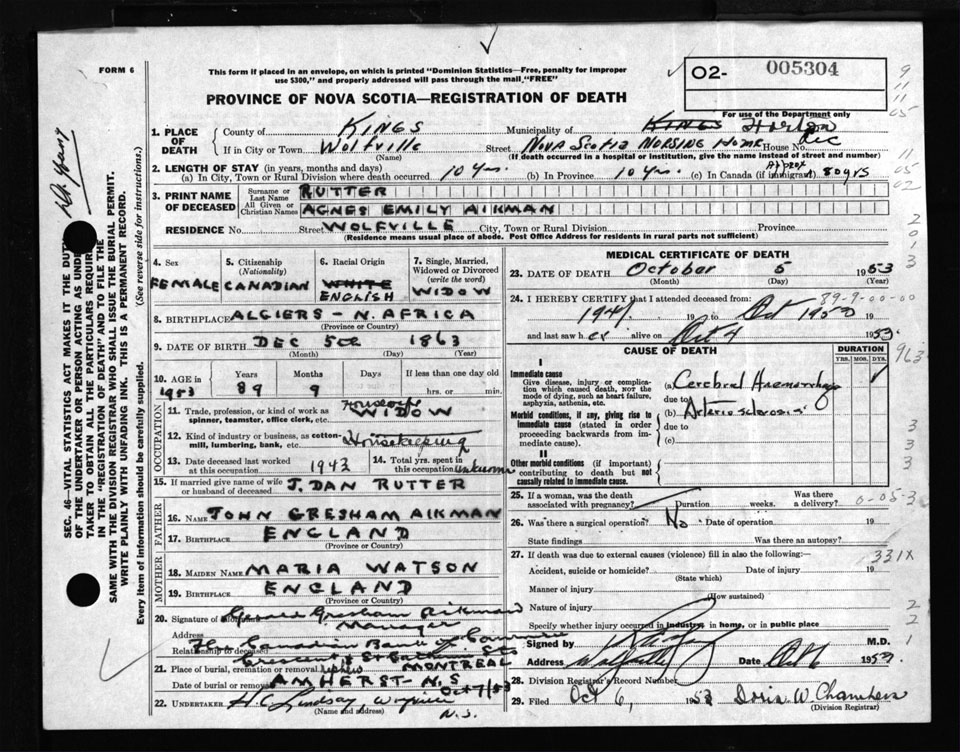 FORM 6
This form if placed in an envelope, on which is printed "Dominion Statistics—Free, penalty for improper
use $300," and properly addressed will pass through the mail "FREE"
O2- 005304
PROVINCE OF NOVA SCOTIA—REGISTRATION OF DEATH
For use of the Department only
1. PLACE OF DEATH
County of KINGS Municipality of KINGS Horton
If in City or Town Wolfville Street NOVA SCOTIA NURSING HOME House No.
(Name) (If death occurred in a hospital or institution, give the name instead of street and number)
2. LENGTH OF STAY (in years, months and days)
(a) In City, Town or Rural Division where death occurred 10 Yrs. (b) In Province 10 Yrs. (c) In Canada (if immigrant) Approx 80 yrs
3. PRINT NAME OF DECEASED
Surname or Last Name RUTTER
All Given or Christian Names AGNES EMILY AIKMAN
RESIDENCE No. Street WOLFVILLE City, Town or Rural Division Province
(Residence means usual place of abode. Post Office Address for residents in rural parts not sufficient)
4. Sex FEMALE
5. Citizenship (Nationality) CANADIAN
6. Racial Origin WHITE ENGLISH
7. Single, Married, Widowed or Divorced (write the word) WIDOW
8. BIRTHPLACE ALGIERS - N. AFRICA
(Province or Country)
9. DATE OF BIRTH DEC 5th 1863
(Month) (Day) (Year)
10. AGE in 1953 Years 89 Months 9 Days If less than one day old hrs. or min.
OCCUPATION
11. Trade, profession, or kind of work as spinner, teamster, office clerk, etc. WIDOW
12. Kind of industry or business, as cotton-mill, lumbering, bank, etc. Housekeeping
13. Date deceased last worked at this occupation 1943
14. Total yrs. spent in this occupation unknown
15. If married give name of wife or husband of deceased J. DAN RUTTER
FATHER
16. NAME JOHN GRESHAM AIKMAN
17. BIRTHPLACE ENGLAND
(Province or Country)
MOTHER
18. MAIDEN NAME MARIA WATSON
19. BIRTHPLACE ENGLAND
(Province or Country)
20. Signature of Gresham Aikman
Manager
Address The Canadian Bank of Commerce
Relationship to deceased Crescent & St Catherine Sts
nephew MONTREAL
21. Place of burial, cremation or removal
Date of burial or removal AMHERST - N.S Oct 7/53
22. UNDERTAKER H.C. Lindsay, N.S.
(Name and address)
MEDICAL CERTIFICATE OF DEATH
23. DATE OF DEATH October 5 1953
(Month) (Day) (Year)
89-9-00-00
24. I HEREBY CERTIFY that I attended deceased from:
194 19 to Oct 1953
and last saw her alive on Oct 4 1953.
CAUSE OF DEATH DURATION
YRS. MOS. DYS.
I
Immediate cause
Give disease, injury or complication which caused death, not the mode of dying, such as heart failure, asphyxia, asthenia, etc.
(a) Cerebral Haemorrhage
due to
Morbid conditions, if any, giving rise to immediate cause (stated in order proceeding backwards from immediate cause).
(b) Arteriosclerosis
due to
(c)
II
Other morbid conditions (if important) contributing to death but not causally related to immediate cause.
25. If a woman, was the death associated with pregnancy? Duration weeks. Was there a delivery?
26. Was there a surgical operation? No Date of operation 19
State findings Was there an autopsy?
27. If death was due to external causes (violence) fill in also the following:—
331X
Accident, suicide or homicide? Date of injury 19
(State which)
Manner of injury
(How sustained)
Nature of injury
Specify whether injury occurred in industry, in home, or in public place
Signed by M.D.
Address Wolfville Date Oct 6 1953
28. Division Registrar's Record Number
29. Filed Oct 6, 1953 Doris W. Chambers
(Division Registrar)
SEC. 46—VITAL STATISTICS ACT MAKES IT THE DUTY
OF THE UNDERTAKER OR PERSON ACTING AS UNDER-
TAKER TO OBTAIN ALL THE PARTICULARS REQUIRED
IN THE "REGISTRATION OF DEATH" AND TO FILE THE
SAME WITH THE DIVISION REGISTRAR WHO SHALL ISSUE THE BURIAL PERMIT.
WRITE PLAINLY WITH UNFADING INK. THIS IS A PERMANENT RECORD.
Every item of information should be carefully supplied. (See reverse side for instructions.)